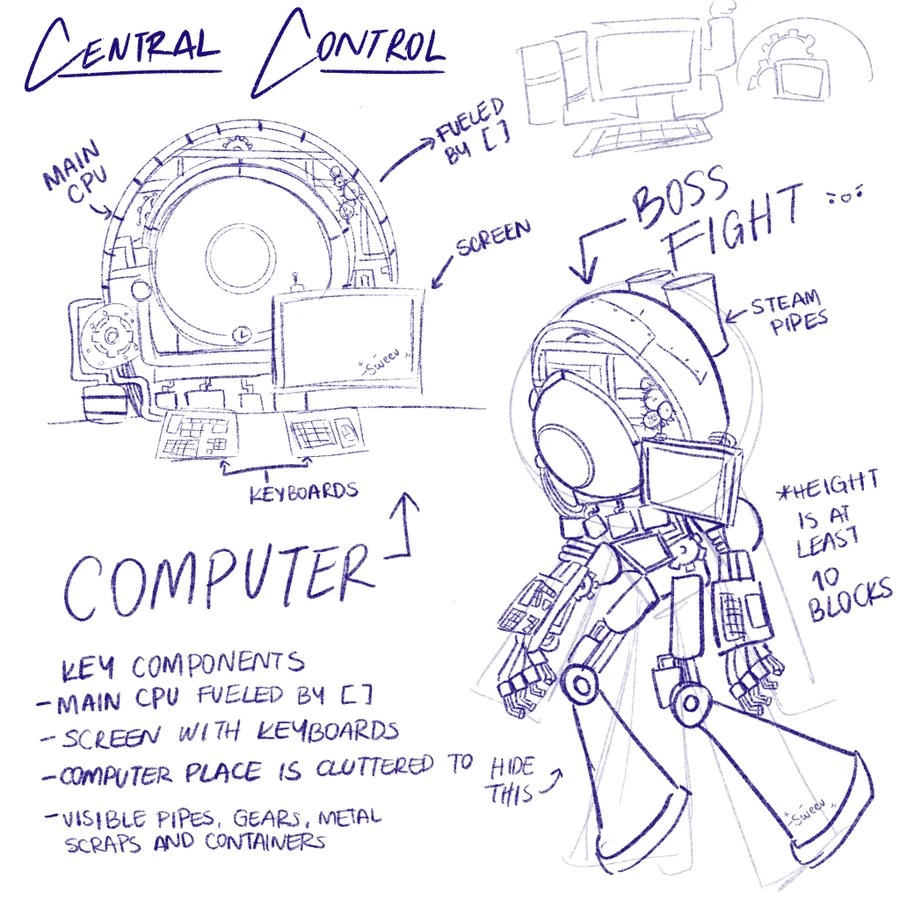 CENTRAL CONTROL
MAIN
CPU
FUELED
BY [ ]
SCREEN
Sweeu
KEYBOARDS
COMPUTER
BOSS
FIGHT
STEAM
PIPES
*HEIGHT
IS AT
LEAST
10
BLOCKS
KEY COMPONENTS
- MAIN CPU FUELED BY [ ]
- SCREEN WITH KEYBOARDS
- COMPUTER PLACE IS CLUTTERED TO HIDE
THIS
- VISIBLE PIPES, GEARS, METAL
SCRAPS AND CONTAINERS
Sweeu